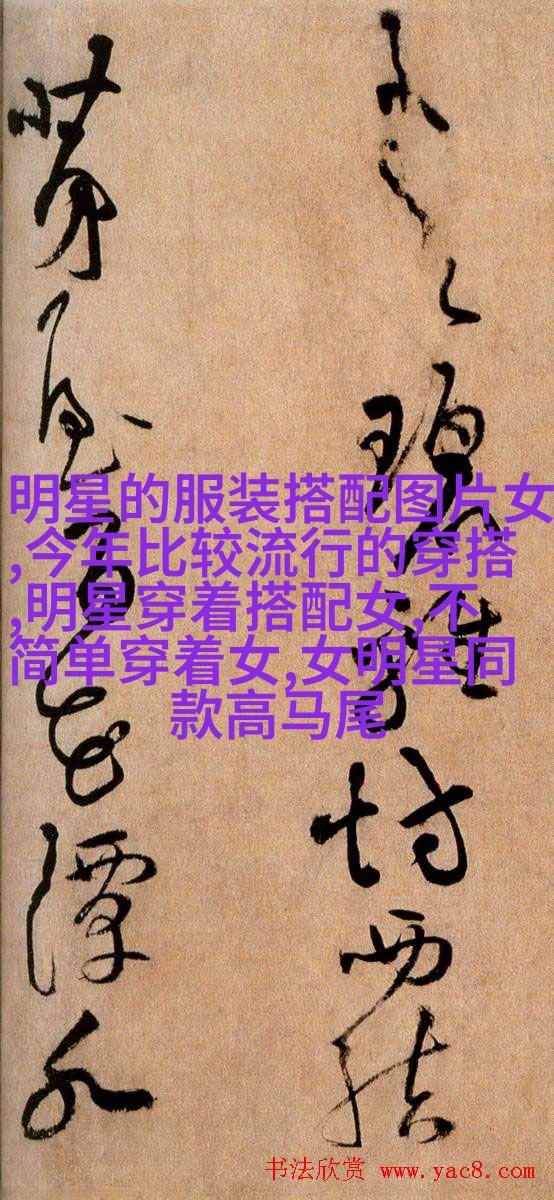 碧雞坊西結
茅屋百花潭水
明星的服装搭配图片女
,今年比较流行的穿搭
,明星穿着搭配女,不
简单穿着女,女明星同
款高马尾
书法欣赏 www.yac8.com